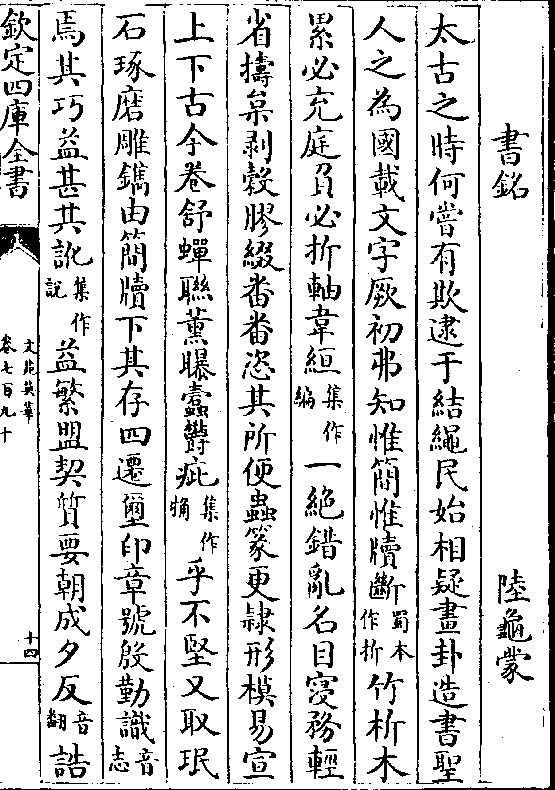 書銘 陸龜蒙
太古之時何嘗有欺逮于結繩民始相疑畫卦造書聖
人之為國載文字厥初弗知惟簡惟牘斷蜀本作折竹析木
累必充庭負必折軸韋絙集作編一絶錯亂名目寖務輕
省擣枲剥榖膠綴番番恣其所便蟲篆更隷形模易宣
上下古今卷舒蟬聯薰曝蠹欝疵集作乎不堅又取珉
石琢磨雕鐫由簡牘下其存四遷璽印章號殷勤識音志
焉其巧益甚其訛集作說益繁盟契質要朝成夕反音翻誥
欽定四庫全書
文苑英華
卷七百九十
十四